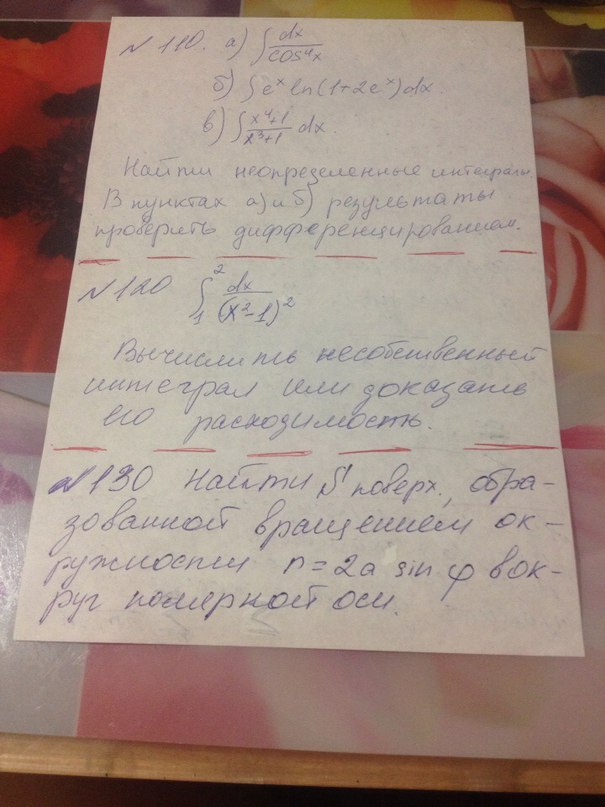 № 110. а) ∫ dx/cos⁴x
б) ∫ eˣ ln(1+2eˣ) dx.
в) ∫ (x⁴+1)/(x³+1) dx.
Найти неопределенные интегралы.
В пунктах а) и б) результаты
проверить дифференцированием.
№ 120 ∫₁² dx/(x²-1)²
Вычислить несобственный
интеграл или доказать
его расходимость.
№ 130 Найти S поверх., обра-
зованной вращением ок-
ружности r = 2a sin φ вок-
руг полярной оси.